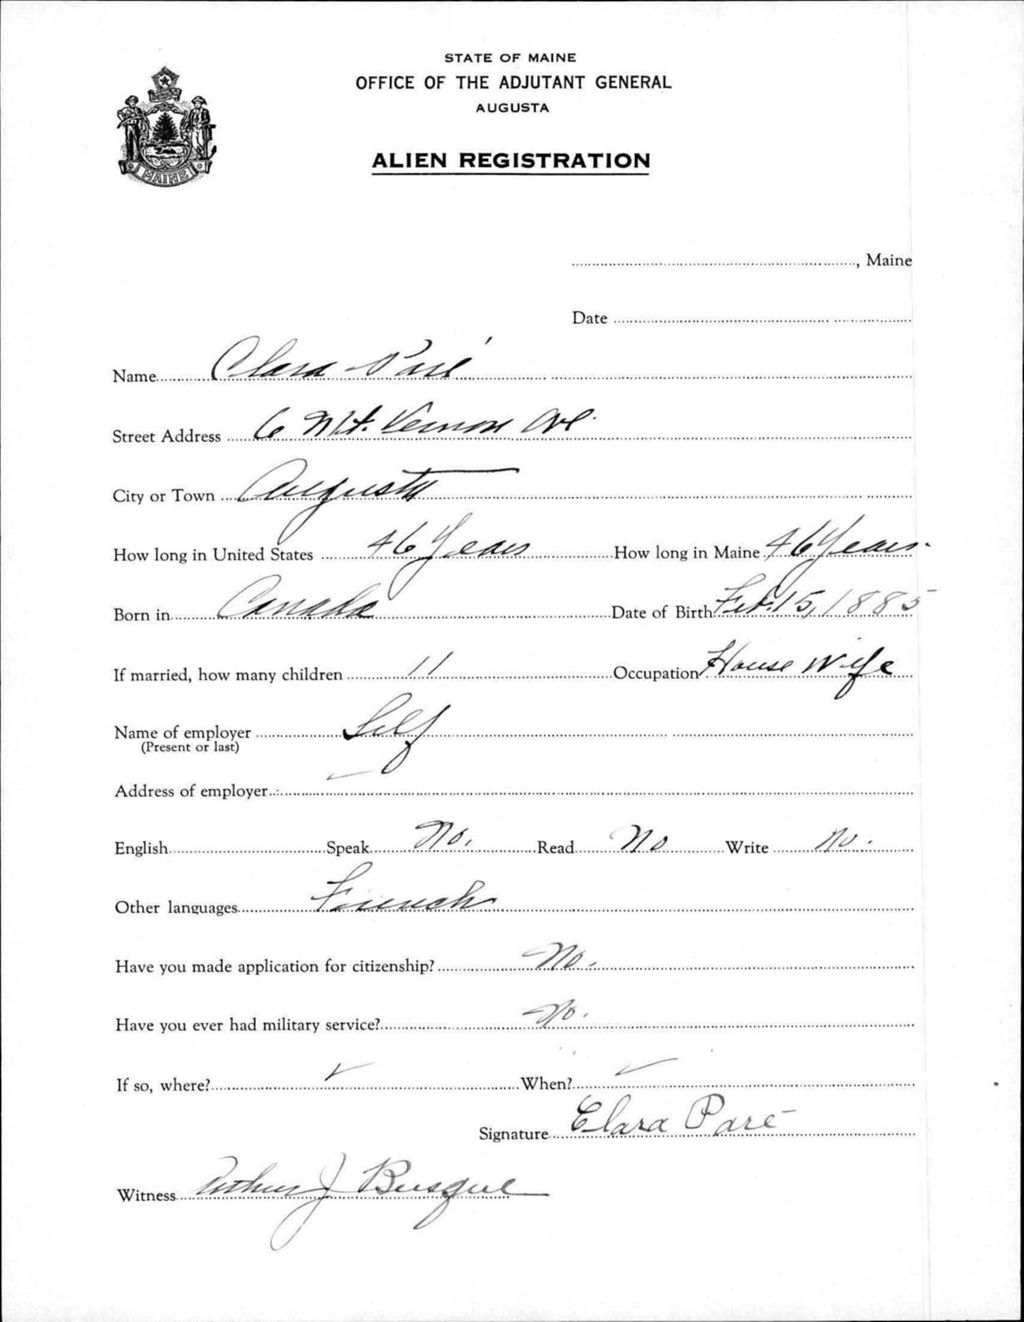 STATE OF MAINE
OFFICE OF THE ADJUTANT GENERAL
AUGUSTA
ALIEN REGISTRATION
MAINE
, Maine
Date
Name Clara Paré
Street Address 6 Mt. Vernon Ave.
City or Town Augusta
How long in United States 46 Years How long in Maine 46 Years.
Born in Canada Date of Birth Feb. 15, 1885
If married, how many children 11 Occupation House Wife
Name of employer Self
(Present or last)
Address of employer —
English Speak No. Read No Write No.
Other languages French
Have you made application for citizenship? No.
Have you ever had military service? No.
If so, where? ✓ When? ✓
Signature Clara Paré
Witness Arthur J Busque